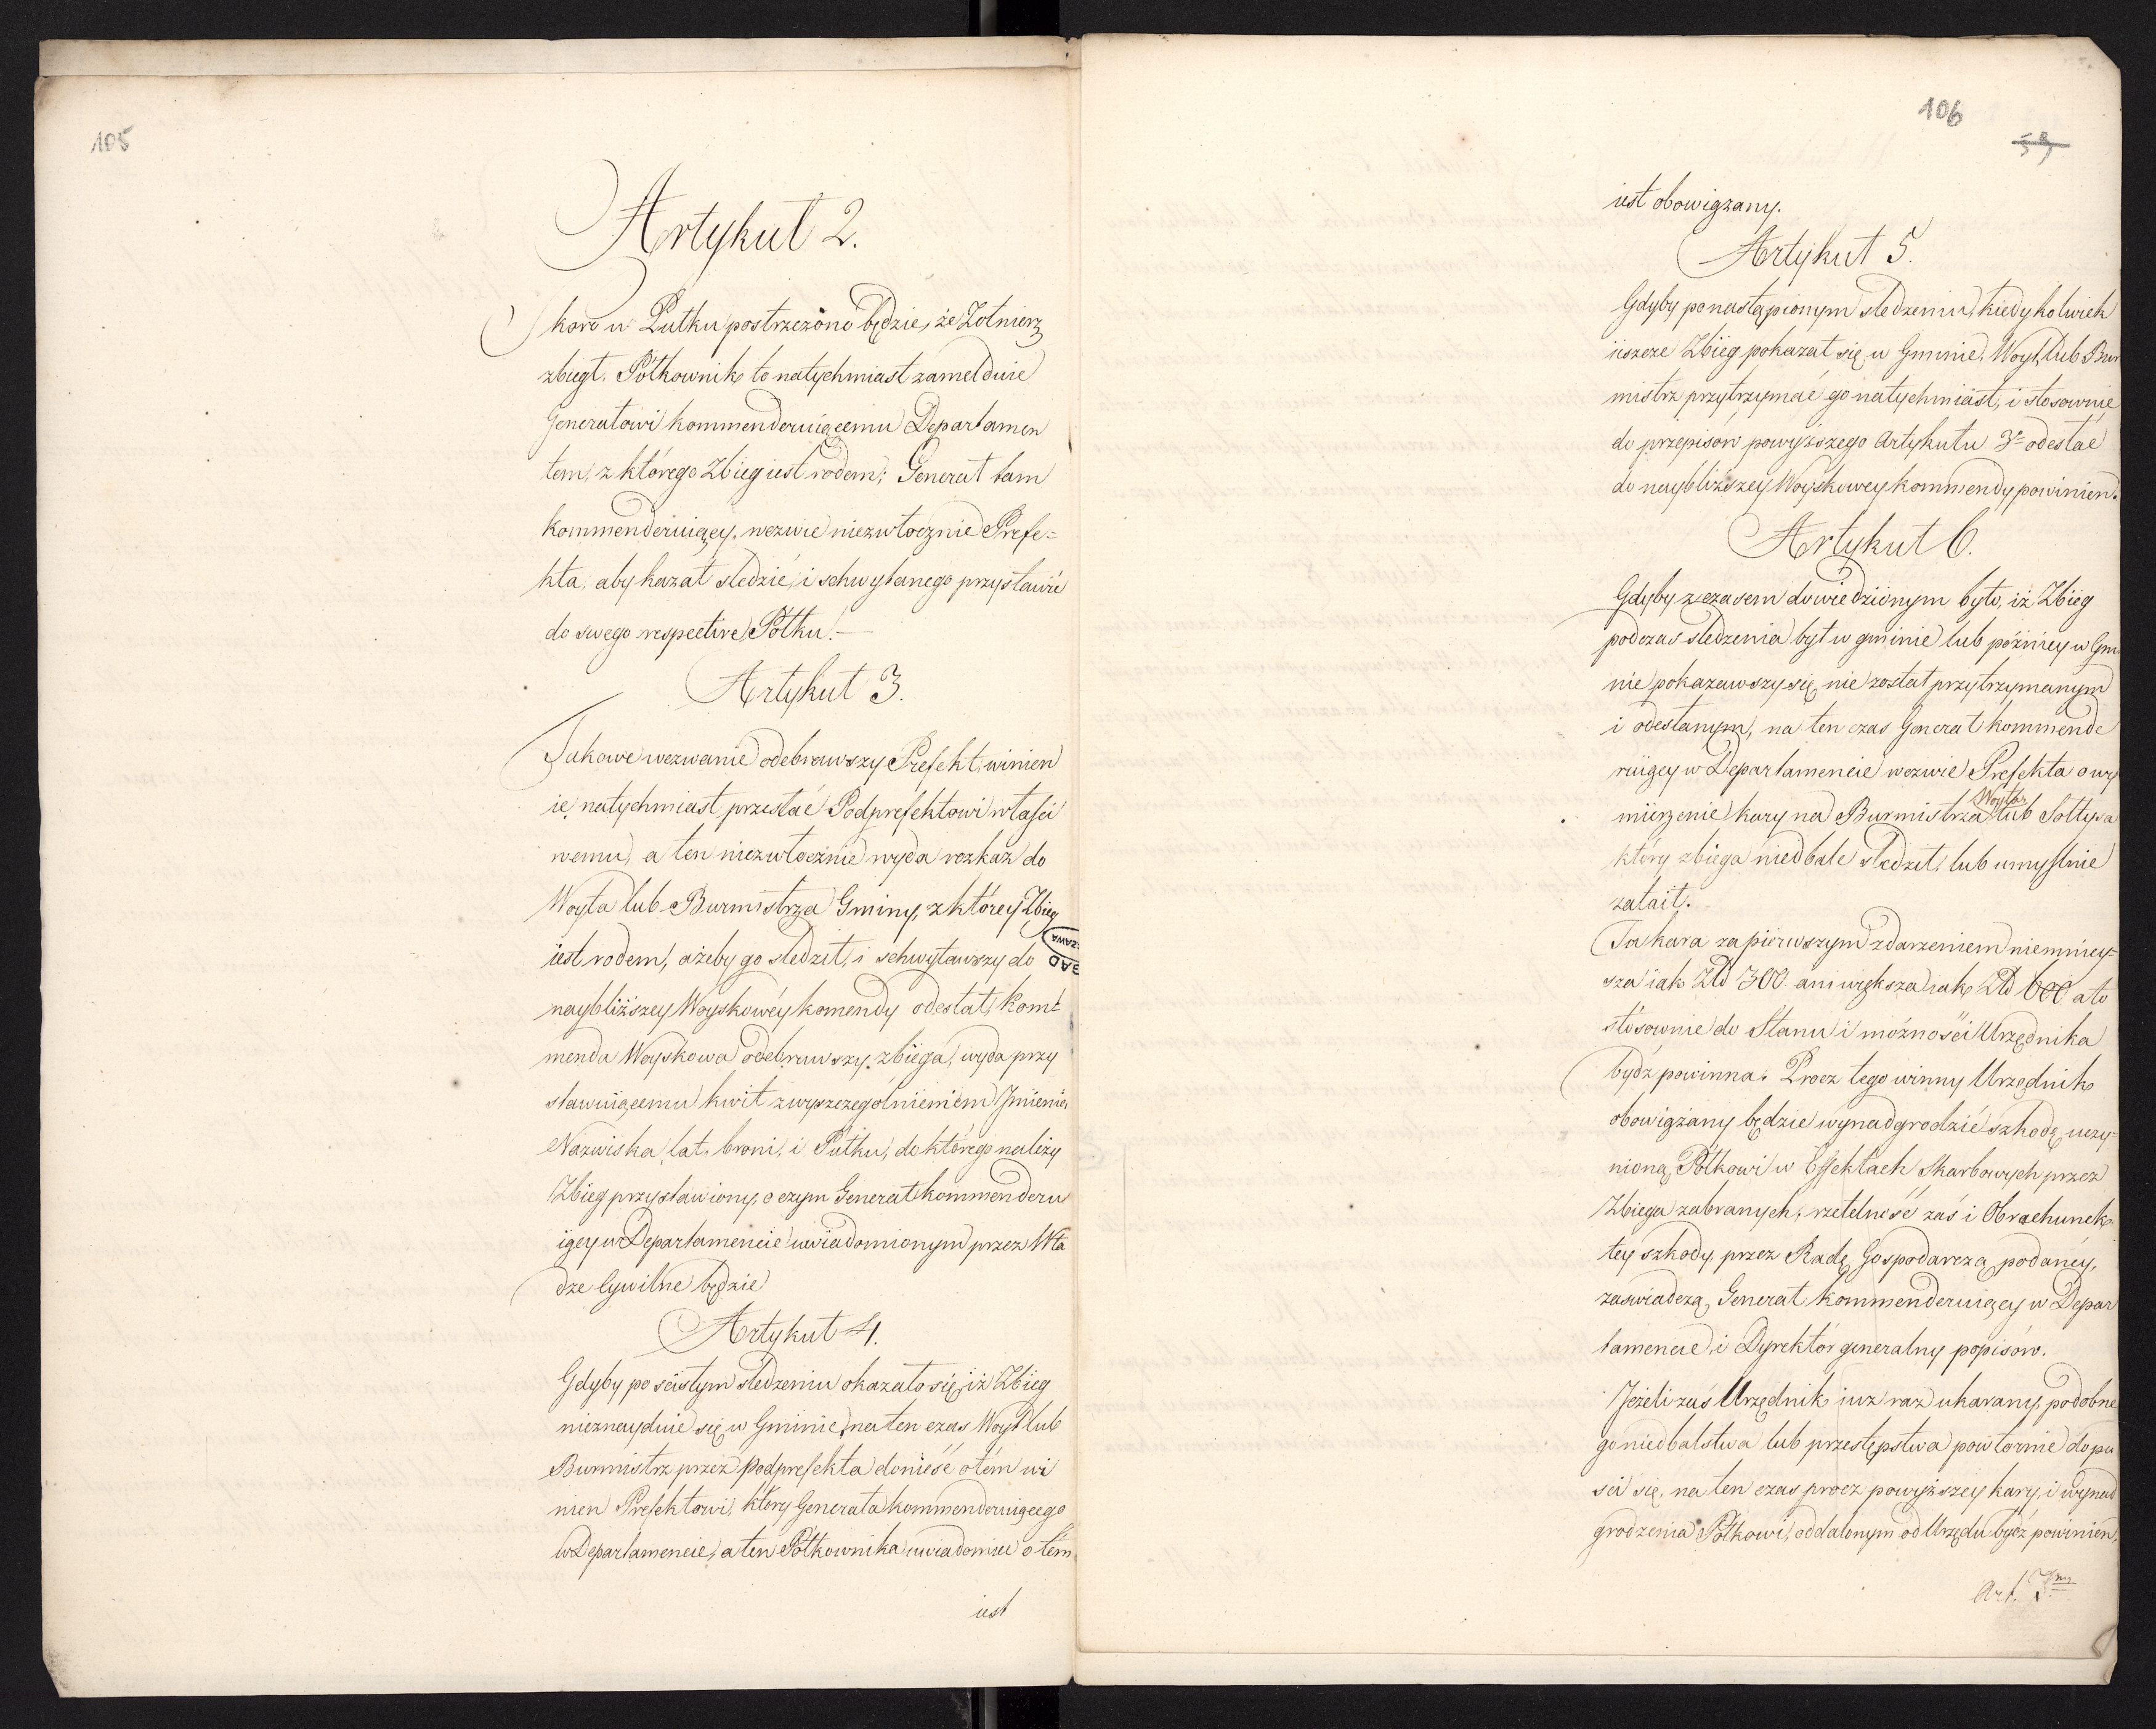 105
Artykuł 2.
Skoro w Pułku postrzeżono będzie, że Żołnierz
zbiegł, Półkownik to natychmiast zamelduie
Generałowi kommenderuiącemu Departamen
tem, z którego Zbieg iest rodem; Generał tam
kommenderuiący, wezwie niezwłocznie Prefe=
kta, aby kazał sledzić, i schwytanego przystawić
do swego respective Półku!—
Artykuł 3.
Takowe wezwanie odebrawszy Prefekt, winien
ie, natychmiast przesłać Podprefektowi właści
wemu, a ten niezwłocznie wyda rozkaz do
Woyta lub Burmistrza Gminy, z którey Zbieg
iest rodem, ażeby go sledził, i schwytawszy do
naybliższey Woyskowéy komendy odesłał, Kom=
menda Woyskowa odebrawszy zbiega, wyda przy
stawuiącemu kwit z wyszczególnieniem Jmienia
Nazwiska, lat, broni, i Pułku, do którego należy
Zbieg przystawiony, o czym Generał kommenderu
iący w Departamencie uwiadomionym przez Wła
dze Cywilne będzie
Artykuł 4.
Gdyby po scisłym sledzeniu okazało się, iż Zbieg
nieznayduie się w Gminie, na ten czas Woyt lub
Burmistrz przez Podprefekta donieść o tém wi
nien Prefektowi, który Generała kommenderuiącego
w Departamencie, a ten Półkownika uwiadomić o tém
iest
106
iest obowiązany.
Artykuł 5.
Gdyby po nastąpionym sledzeniu, kiedykolwiek
ieszcze Zbieg pokazał się w Gminie, Woyt, lub Bur
mistrz przytrzymać go natychmiast, i stosownie
do przepisów powyższego Artykułu 3º odesłać
do naybliższey Woyskowey kommendy powinien.
Artykuł 6.
Gdyby z czasem dowiedzionym było, iż Zbieg
podczas sledzenia był w gminie lub późniey w Gmi
nie pokazawszy się, nie został przytrzymanym
i odesłanym, na ten czas Generał kommende
ruiący w Departamencie wezwie Prefekta o wy
mierzenie kary na Burmistrza Woyta lub Sołtysa
który zbiega niedbale sledził, lub umyślnie
zataił.
Ta kara za pierwszym zdarzeniem niemniey=
sza iak Złd 300. ani większa iak Złd 600 a to
stósownie do Stanu i możności Urzędnika
bydź powinna. Procz tego winny Urzędnik
obowiązany będzie wynadgrodzić szkodę, uczy=
nioną Półkowi w Effektach Skarbowych przez
Zbiega zabranych, rzetelność zaś i Obrachunek
tey szkody, przez Radę Gospodarczą podaney,
zaswiadczą, Generał kommenderuiący w Depar
tamencie, i Dyrektór generalny popisów.
Jeżeli zaś Urzędnik iuz raz ukarany, podobne
go niedbalstwa lub przestępstwa powtornie dopu
ści się, na ten czas procz powyższey kary, i wynad
grodzenia Półkowi, oddalonym od Urzędu bydź powinien,
Art. 7my